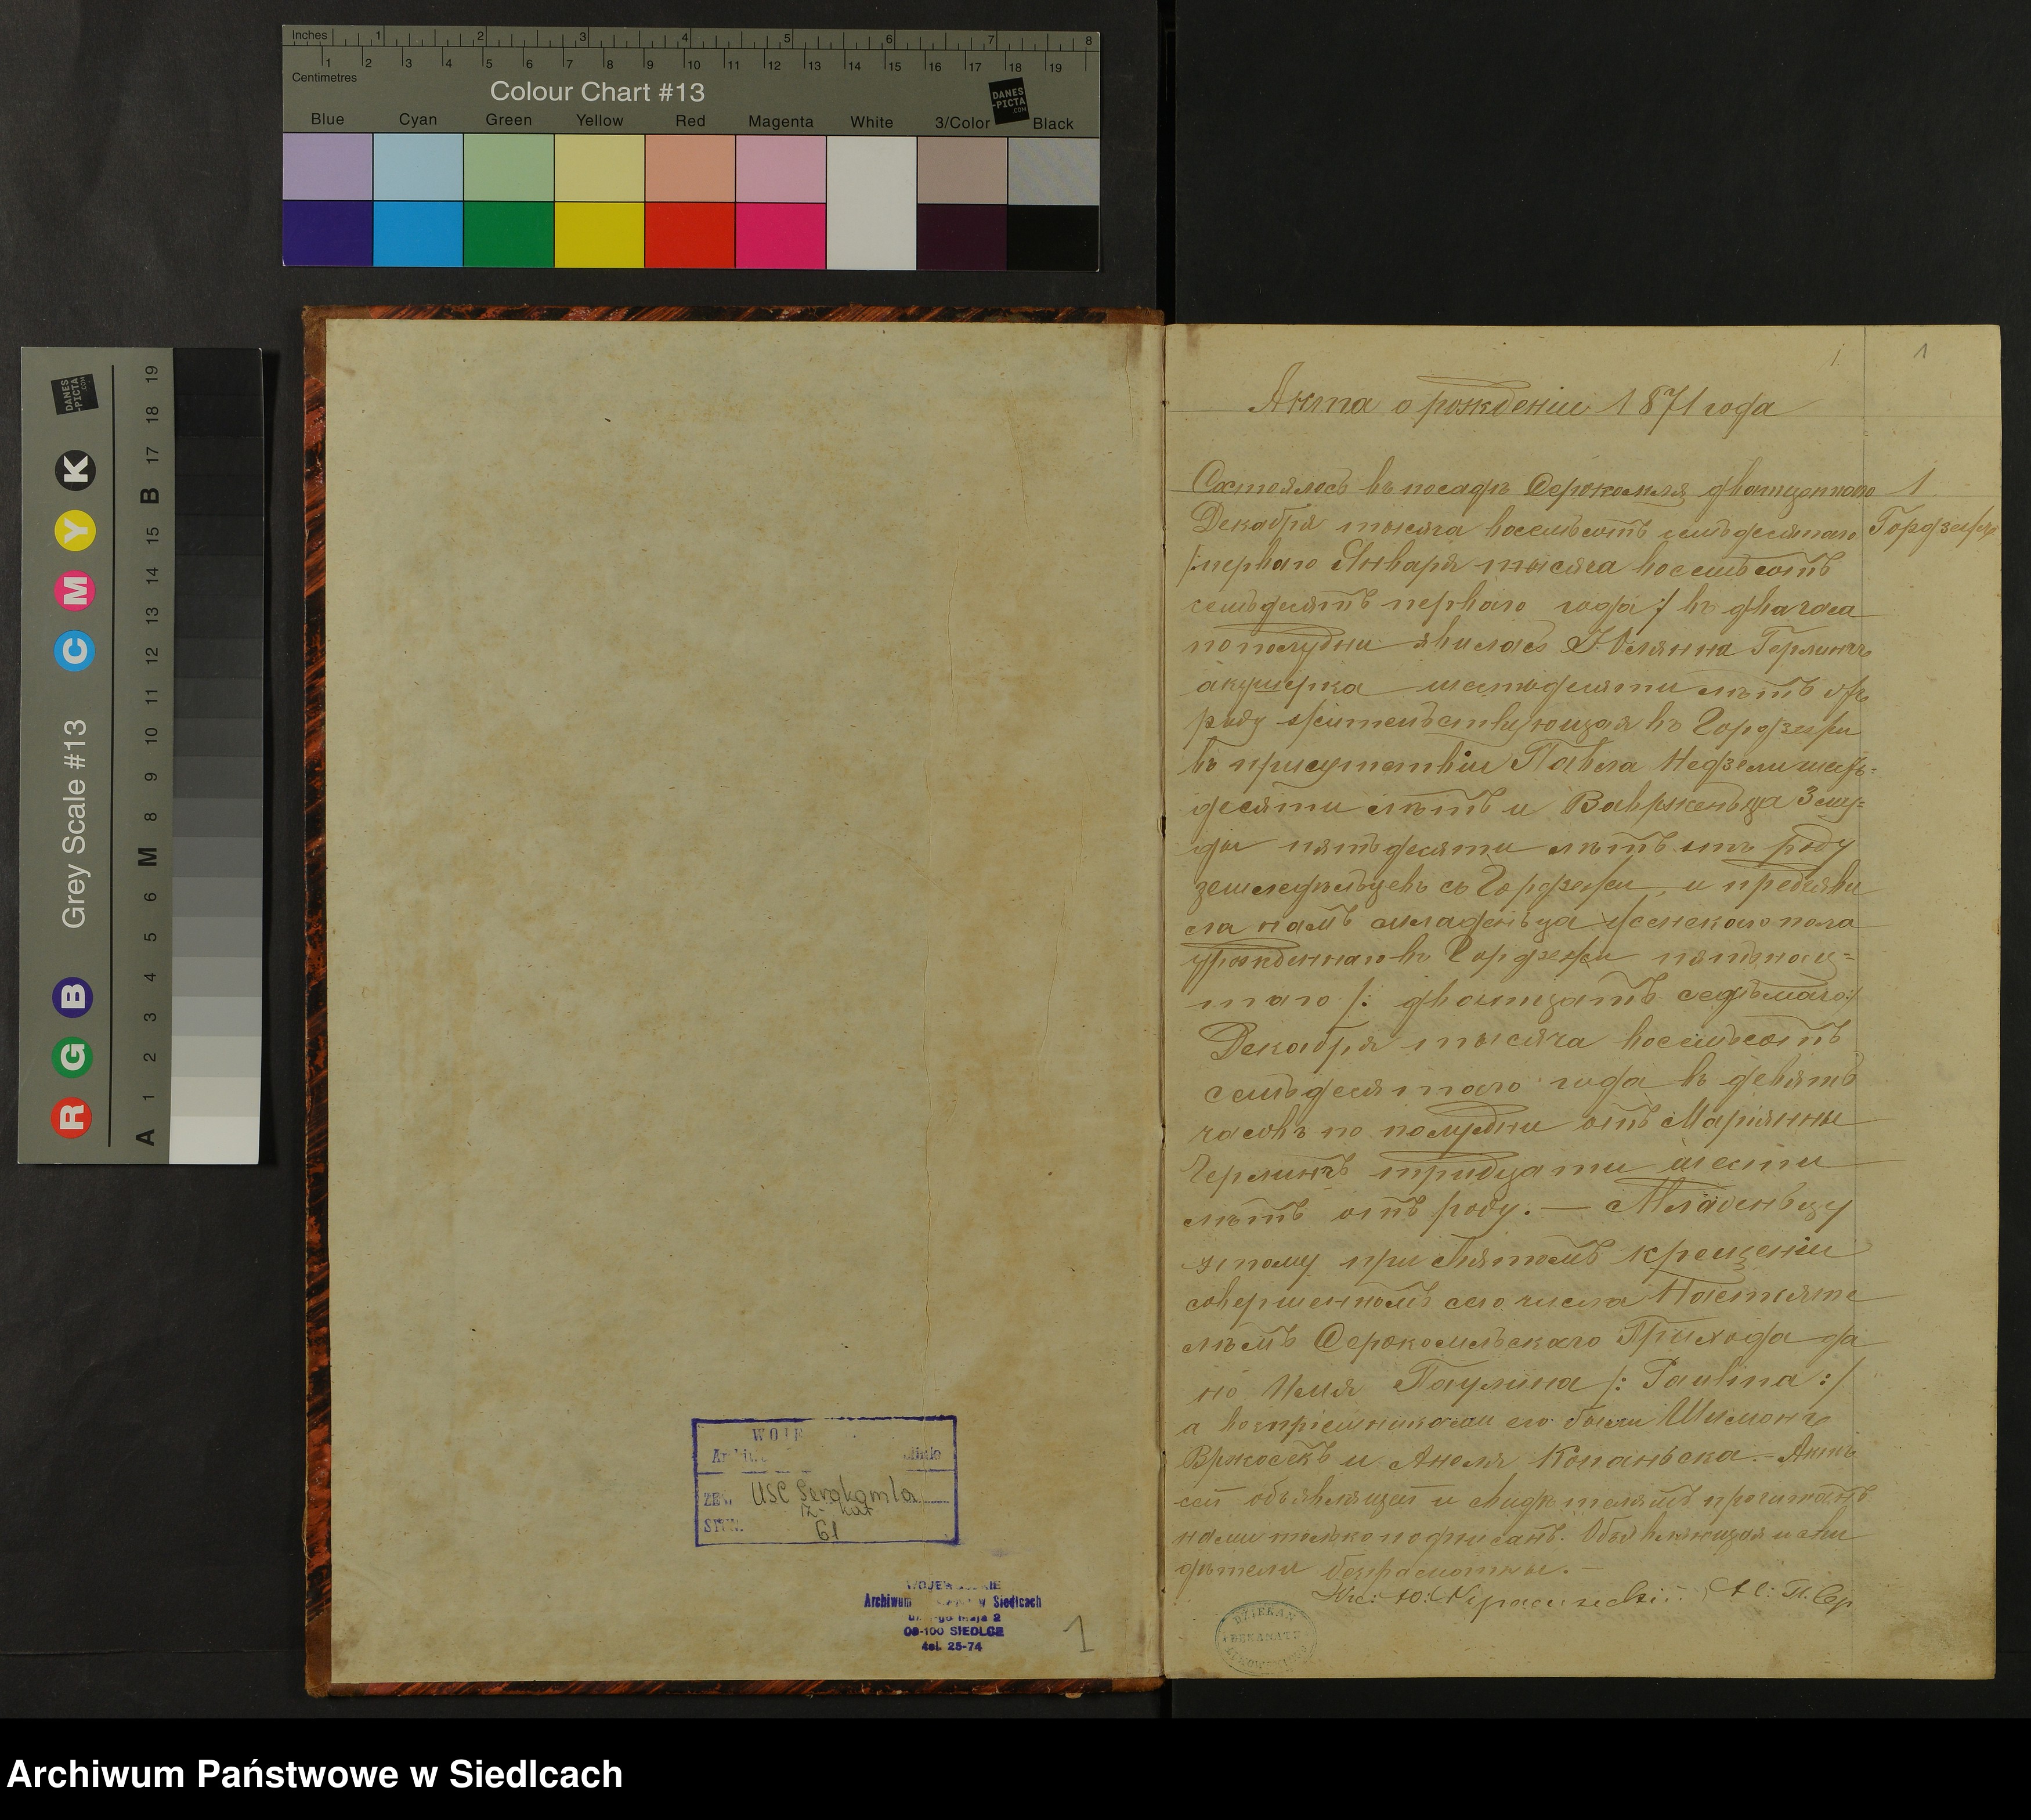 Inches 1 2 3 4 5 6 7 8
1 2 3 4 5 6 7 8 9 10 11 12 13 14 15 16 17 18 19
Centimetres
Colour Chart #13
DANES
-PICTA
.COM
Blue Cyan Green Yellow Red Magenta White 3/Color Black
Grey Scale #13
DANES
-PICTA
.COM
R G B C M Y K
A 1 2 3 4 5 6 M 7 8 9 10 11 12 13 14 15 B 16 17 18 19
1
Акта о рождении 1871 года
1
Состоялось въ посадѣ Серокомля двадцатого
Горdзежк
Декабря тысяча восемьсотъ семьдесятаго
/:перваго Января тысяча восемьсотъ
семьдесятъ перваго года:/ въ два часа
пополудни явилась Юлянна Герлинъ
акушерка шестьдесяти лѣтъ отъ
роду жительствующая въ Горdзежки
въ присутствіи Павла Недзели шесть=
десяти лѣтъ и Ваврженьца Зму=
ды пятьдесяти лѣтъ отъ роду
земледѣльцевъ съ Горdзежки, и предъяви
ла намъ младеньца женскаго пола
урожденнаго въ Горdзежки пятнац=
таго /: двадцать седьмаго:/
Декабря тысяча восемьсотъ
семьдесятаго года въ девять
часовъ по полудни отъ Марiянны
Герлинъ тридцати шести
лѣтъ отъ роду. — Младеньцу
этому при святомъ крещеніи
совершенномъ сего числа Настояте
лѣмъ Серокомльскаго Прихода да
но Имя Паулина /: Paulina :/
а воспріемниками его были Шимонъ
Вржосекъ и Анеля Копаньска. – Актъ
сей объявляющей и свидѣтелямъ прочитанъ
нами только подписанъ. Объявляющая и сви
дѣтели безграмотны. –
Кс: Ю: Красуски: А: С: П: Сер
DZIEKAN
DEKANATU
WOJE
Archiw
ZESP. USC Serokomla
rz-kat
SYGN. 61
Archiwum w Siedlcach
08-100 SIEDLCE
tel. 25-74
1
Archiwum Państwowe w Siedlcach